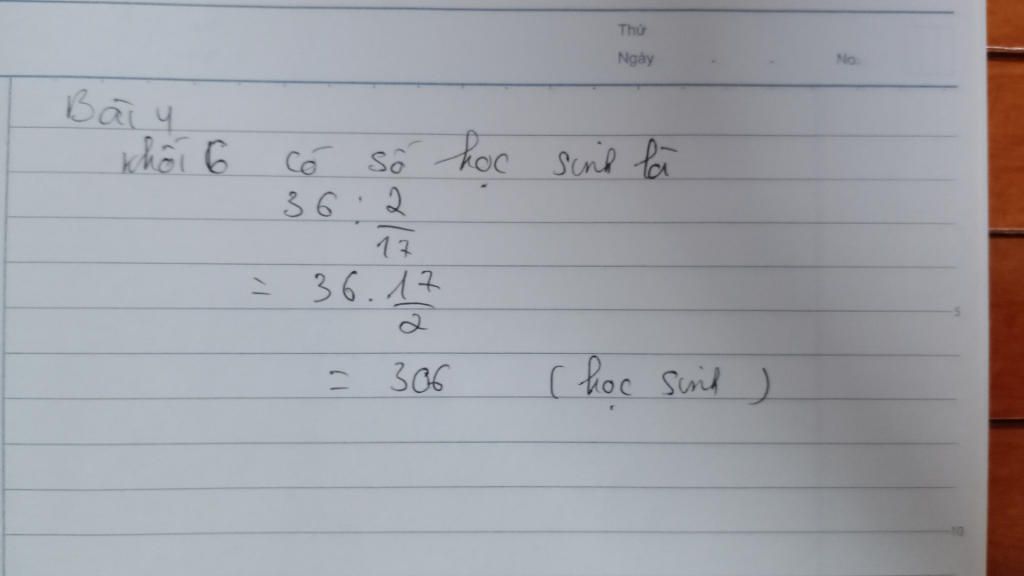 Thứ
Ngày . . No.
Bài 4
Khối 6 có số học sinh là
36 : 2/17
= 36 . 17/2
= 306 (học sinh)
5
10